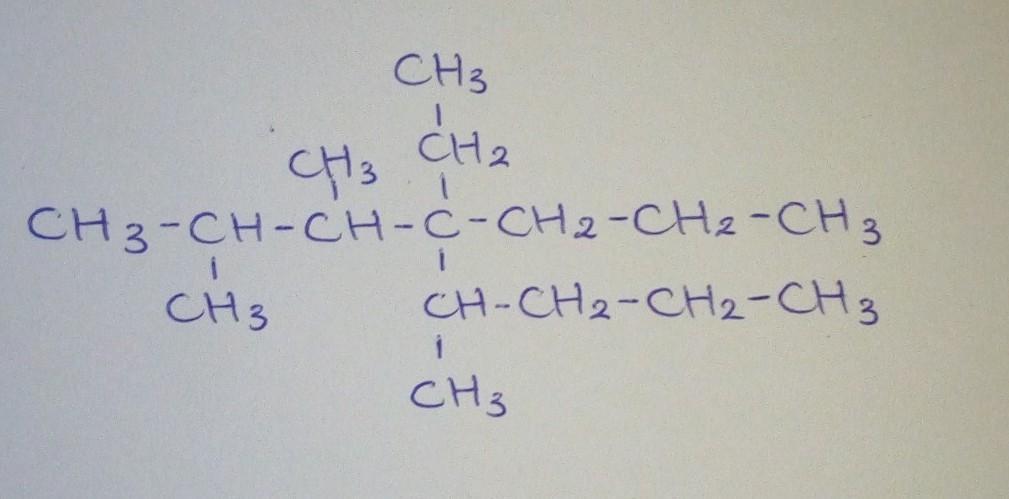 CH3
CH3 CH2
CH3-CH-CH-C-CH2-CH2-CH3
CH3 CH-CH2-CH2-CH3
CH3